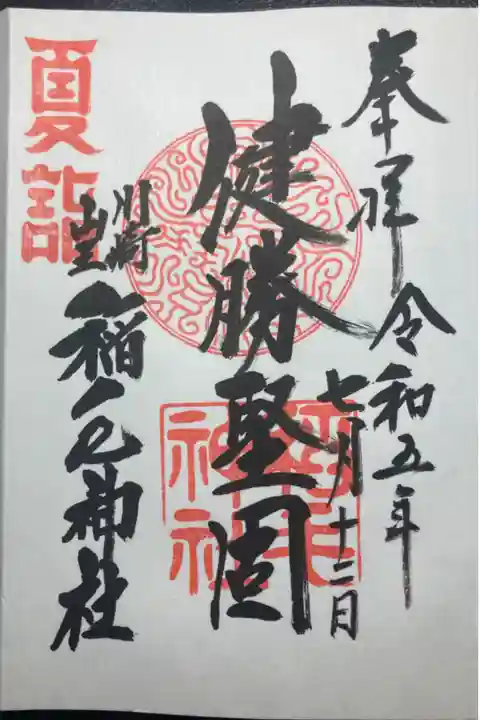 奉拝 令和五年
七月十三日
健勝堅固
川崎
山王
稲毛神社
夏詣
稲毛
神社